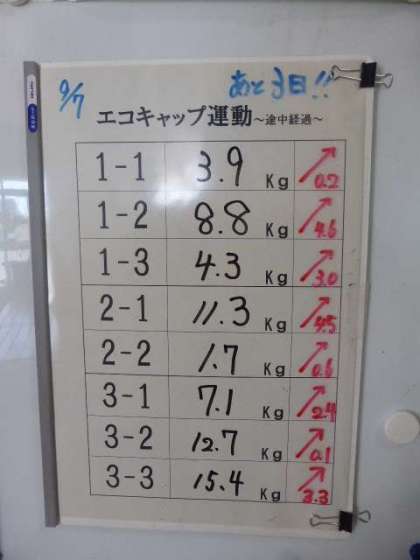 9/7
あと3日!!
エコキャップ運動～途中経過～
1-1 3.9 Kg 0.2
1-2 8.8 Kg 4.6
1-3 4.3 Kg 3.0
2-1 11.3 Kg 4.5
2-2 1.7 Kg 0.6
3-1 7.1 Kg 2.4
3-2 12.7 Kg 0.1
3-3 15.4 Kg 3.3